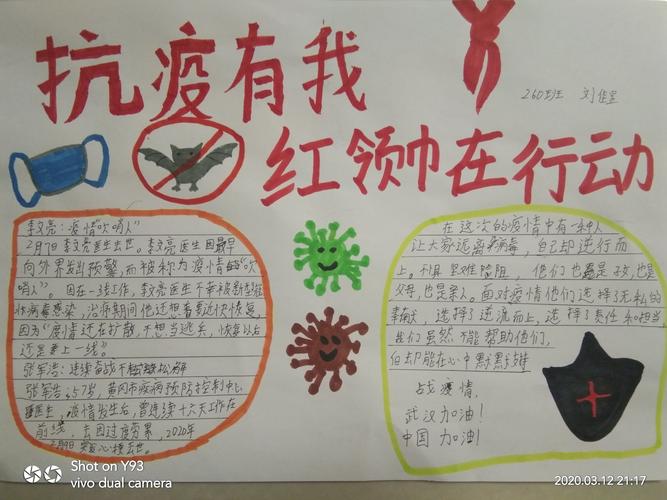 抗疫有我
260班 刘佳
红领巾在行动
李文亮：疫情"吹哨人"
2月7日李文亮医生去世。李文亮医生因最早
向外界发出预警，而被称为疫情的"吹
哨人"。因在一线工作，李文亮医生不幸被新型冠
状病毒感染，治疗期间他还想着要尽快恢复，
因为"疫情还在扩散，不想当逃兵，恢复以后
还是要上一线"。
张军浩：连续奋战不松解
张军浩，57岁，黄冈市疾病预防控制中心
医生，疫情发生后，曾连续十六天工作在
前线，去因过度劳累，2020年
2月9日突发心梗去世。
在这次的疫情中有一种人
让大家远离病毒，自己却逆行而
上。不畏艰难险阻，他们也是子女，也是
父母，也是亲人。面对疫情他们选择了无私的
奉献，选择了逆流而上，选择了责任和担当
我们虽然不能帮助他们，
但却能在心中默默支持
战疫情，
武汉加油！
中国加油！
Shot on Y93
vivo dual camera
2020.03.12 21:17